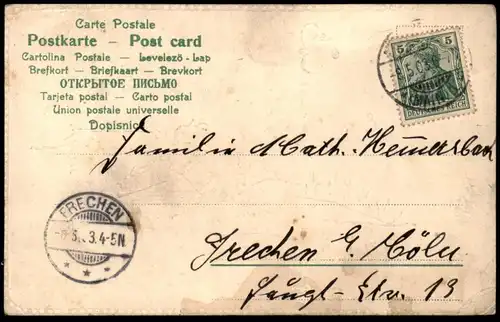 Carte Postale
Postkarte – Post card
Cartolina Postale – Levelező-Lap
Brefkort – Briefkaart – Brevkort
ОТКРЫТОЕ ПИСЬМО
Tarjeta postal – Carto postal
Union postale universelle
Dopisnice
5 5
DEUTSCHES REICH
Familie Math. Hemmersbach
FRECHEN
3.4-5N
Frechen b/ Cöln
Str. 13